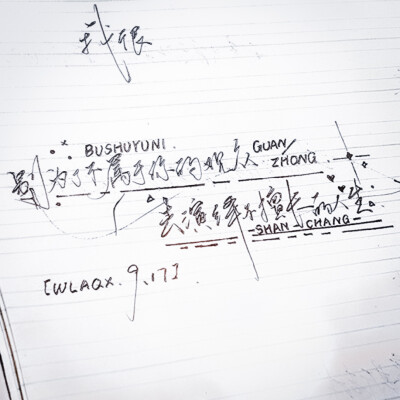 我很
BUSHUYUNI. GUAN ZHONG
别为了不属于你的观众
去演绎不擅长的人生。
SHAN CHANG
[WLAQX. 9.17]